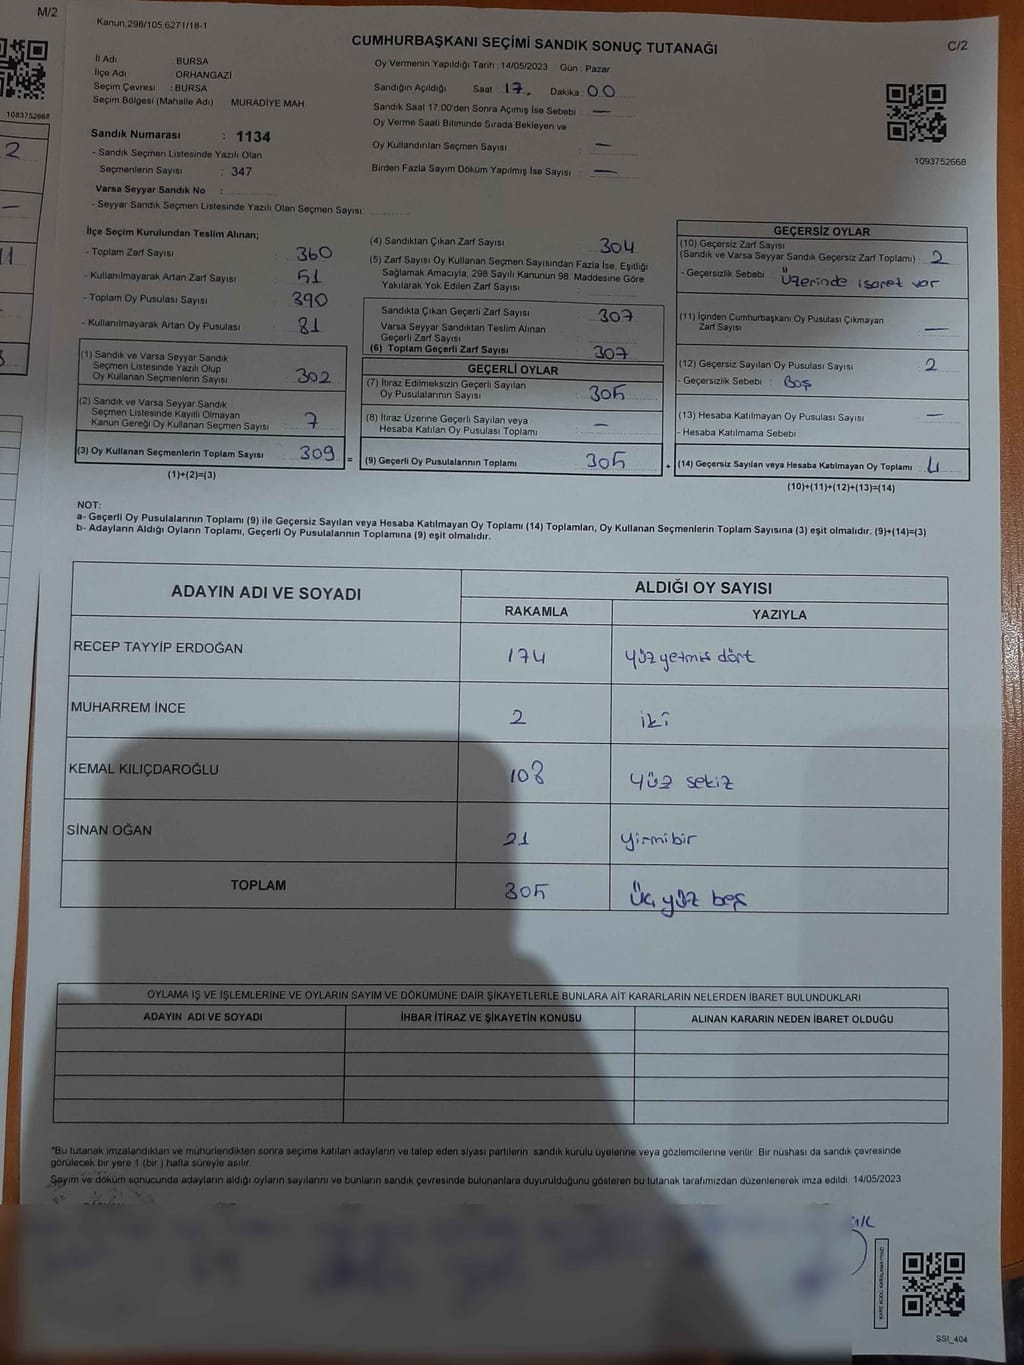 M/2
Kanun,298/105,6271/18-1
CUMHURBAŞKANI SEÇİMİ SANDIK SONUÇ TUTANAĞI
C/2
İl Adı BURSA
İlçe Adı ORHANGAZİ
Seçim Çevresi : BURSA
Seçim Bölgesi (Mahalle Adı) MURADİYE MAH.
Oy Vermenin Yapıldığı Tarih : 14/05/2023 Gün : Pazar
Sandığın Açıldığı Saat 17. Dakika : 00
Sandık Saat 17.00'den Sonra Açımış İse Sebebi —
Oy Verme Saati Bitiminde Sırada Bekleyen ve
Oy Kullandırılan Seçmen Sayısı : —
Birden Fazla Sayım Döküm Yapılmış İse Sayısı : —
1093752668
1093752668
Sandık Numarası : 1134
- Sandık Seçmen Listesinde Yazılı Olan
Seçmenlerin Sayısı : 347
Varsa Seyyar Sandık No :
- Seyyar Sandık Seçmen Listesinde Yazılı Olan Seçmen Sayısı
İlçe Seçim Kurulundan Teslim Alınan;
- Toplam Zarf Sayısı : 360
- Kullanılmayarak Artan Zarf Sayısı : 51
- Toplam Oy Pusulası Sayısı : 390
- Kullanılmayarak Artan Oy Pusulası : 81
(1) Sandık ve Varsa Seyyar Sandık
Seçmen Listesinde Yazılı Olup
Oy Kullanan Seçmenlerin Sayısı : 302
(2) Sandık ve Varsa Seyyar Sandık
Seçmen Listesinde Kayıtlı Olmayan
Kanun Gereği Oy Kullanan Seçmen Sayısı : 7
(3) Oy Kullanan Seçmenlerin Toplam Sayısı : 309 =
(1)+(2)=(3)
(4) Sandıktan Çıkan Zarf Sayısı : 304
(5) Zarf Sayısı Oy Kullanan Seçmen Sayısından Fazla İse, Eşitliği
Sağlamak Amacıyla, 298 Sayılı Kanunun 98. Maddesine Göre
Yakılarak Yok Edilen Zarf Sayısı :
Sandıkta Çıkan Geçerli Zarf Sayısı : 307
Varsa Seyyar Sandıktan Teslim Alınan
Geçerli Zarf Sayısı :
(6) Toplam Geçerli Zarf Sayısı : 307
GEÇERLİ OYLAR
(7) İtiraz Edilmeksizin Geçerli Sayılan
Oy Pusulalarının Sayısı : 305
(8) İtiraz Üzerine Geçerli Sayılan veya
Hesaba Katılan Oy Pusulası Toplamı : —
(9) Geçerli Oy Pusulalarının Toplamı : 305 +
GEÇERSİZ OYLAR
(10) Geçersiz Zarf Sayısı
(Sandık ve Varsa Seyyar Sandık Geçersiz Zarf Toplamı) : 2
- Geçersizlik Sebebi : Üzerinde işaret var
(11) İçinden Cumhurbaşkanı Oy Pusulası Çıkmayan
Zarf Sayısı —
(12) Geçersiz Sayılan Oy Pusulası Sayısı : 2
- Geçersizlik Sebebi : Boş
(13) Hesaba Katılmayan Oy Pusulası Sayısı : —
- Hesaba Katılmama Sebebi
(14) Geçersiz Sayılan veya Hesaba Katılmayan Oy Toplamı : 4
(10)+(11)+(12)+(13)=(14)
NOT:
a- Geçerli Oy Pusulalarının Toplamı (9) ile Geçersiz Sayılan veya Hesaba Katılmayan Oy Toplamı (14) Toplamları, Oy Kullanan Seçmenlerin Toplam Sayısına (3) eşit olmalıdır. (9)+(14)=(3)
b- Adayların Aldığı Oyların Toplamı, Geçerli Oy Pusulalarının Toplamına (9) eşit olmalıdır.
ADAYIN ADI VE SOYADI
ALDIĞI OY SAYISI
RAKAMLA YAZIYLA
RECEP TAYYİP ERDOĞAN 174 yüz yetmiş dört
MUHARREM İNCE 2 iki
KEMAL KILIÇDAROĞLU 108 yüz sekiz
SİNAN OĞAN 21 yirmibir
TOPLAM 305 Üç yüz beş
OYLAMA İŞ VE İŞLEMLERİNE VE OYLARIN SAYIM VE DÖKÜMÜNE DAİR ŞİKAYETLERLE BUNLARA AİT KARARLARIN NELERDEN İBARET BULUNDUKLARI
ADAYIN ADI VE SOYADI
İHBAR İTİRAZ VE ŞİKAYETİN KONUSU
ALINAN KARARIN NEDEN İBARET OLDUĞU
*Bu tutanak imzalandıktan ve mühürlendikten sonra seçime katılan adayların ve talep eden siyasi partilerin sandık kurulu üyelerine veya gözlemcilerine verilir. Bir nüshası da sandık çevresinde
görülecek bir yere 1 (bir) hafta süreyle asılır.
Sayım ve döküm sonucunda adayların aldığı oyların sayılarını ve bunların sandık çevresinde bulunanlara duyurulduğunu gösteren bu tutanak tarafımızdan düzenlenerek imza edildi. 14/05/2023
SSI_404